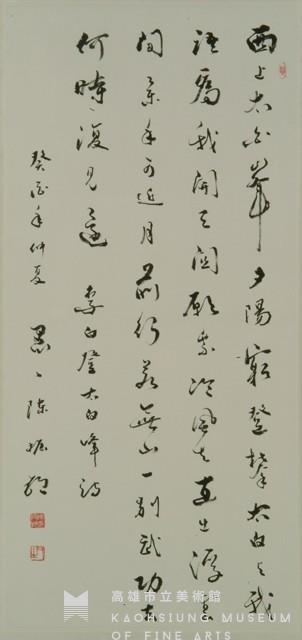 西上太白峰夕陽窮登攀太白与我
語為我開天關願乘泠風去直出浮雲
間舉手可近月前行若無山一別武功去
何時復見還 李白登太白峰詩
癸酉年仲夏 陳
高雄市立美術館
KAOHSIUNG MUSEUM
OF FINE ARTS